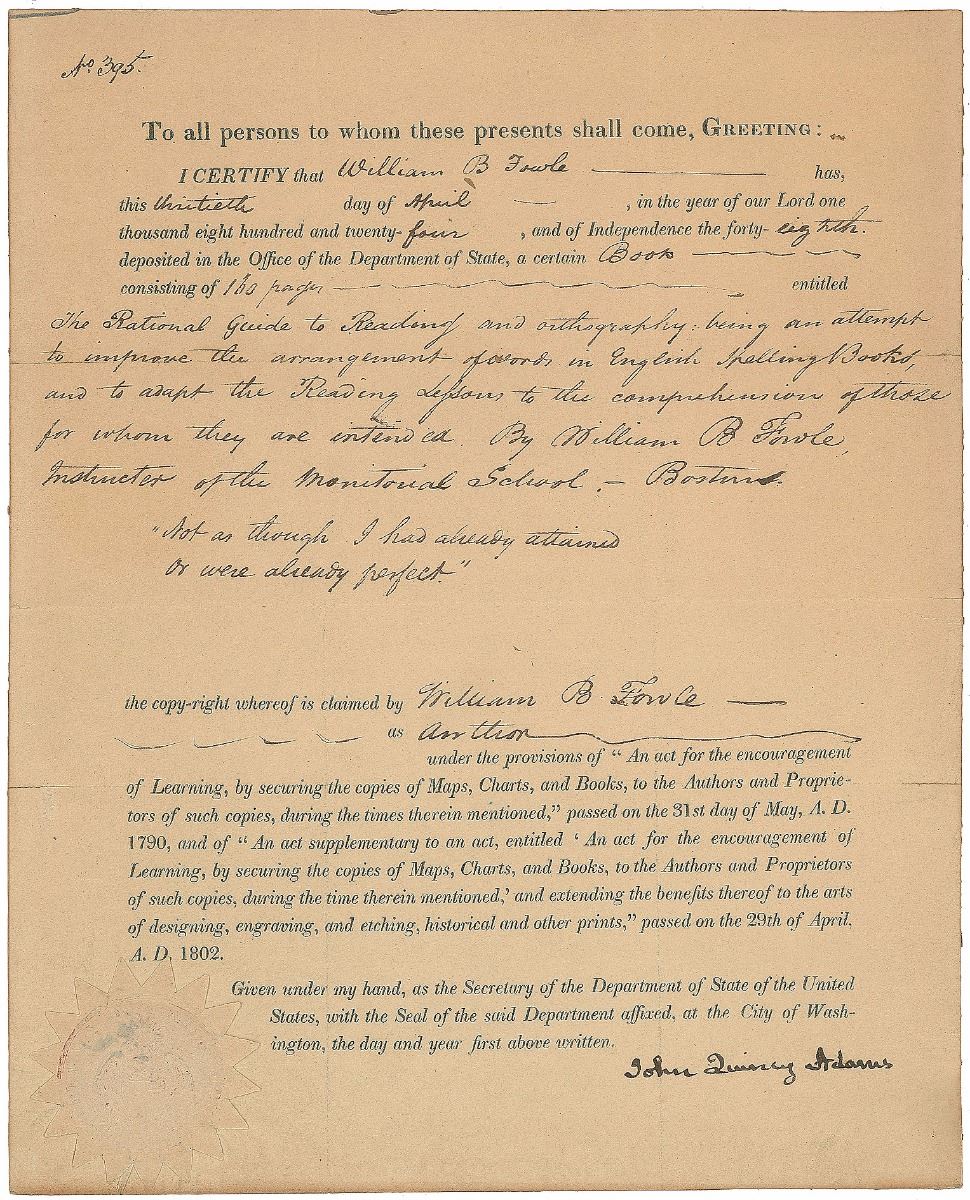 No 395.
To all persons to whom these presents shall come, GREETING:
I CERTIFY that William B Fowle has,
this thirtieth day of April, in the year of our Lord one
thousand eight hundred and twenty-four, and of Independence the forty-eighth.
deposited in the Office of the Department of State, a certain Book
consisting of 160 pages entitled
The Rational Guide to Reading and orthography: being an attempt
to improve the arrangement of words in English Spelling Books,
and to adapt the Reading Lessons to the comprehension of those
for whom they are intended. By William B Fowle,
Instructer of the Monitorial School, – Boston.
"Not as though I had already attained
Or were already perfect."
the copy-right whereof is claimed by William B Fowle
as Author
under the provisions of "An act for the encouragement
of Learning, by securing the copies of Maps, Charts, and Books, to the Authors and Proprie-
tors of such copies, during the times therein mentioned," passed on the 31st day of May, A. D.
1790, and of "An act supplementary to an act, entitled 'An act for the encouragement of
Learning, by securing the copies of Maps, Charts, and Books, to the Authors and Proprietors
of such copies, during the time therein mentioned,' and extending the benefits thereof to the arts
of designing, engraving, and etching, historical and other prints," passed on the 29th of April,
A. D. 1802.
Given under my hand, as the Secretary of the Department of State of the United
States, with the Seal of the said Department affixed, at the City of Wash-
ington, the day and year first above written.
John Quincy Adams